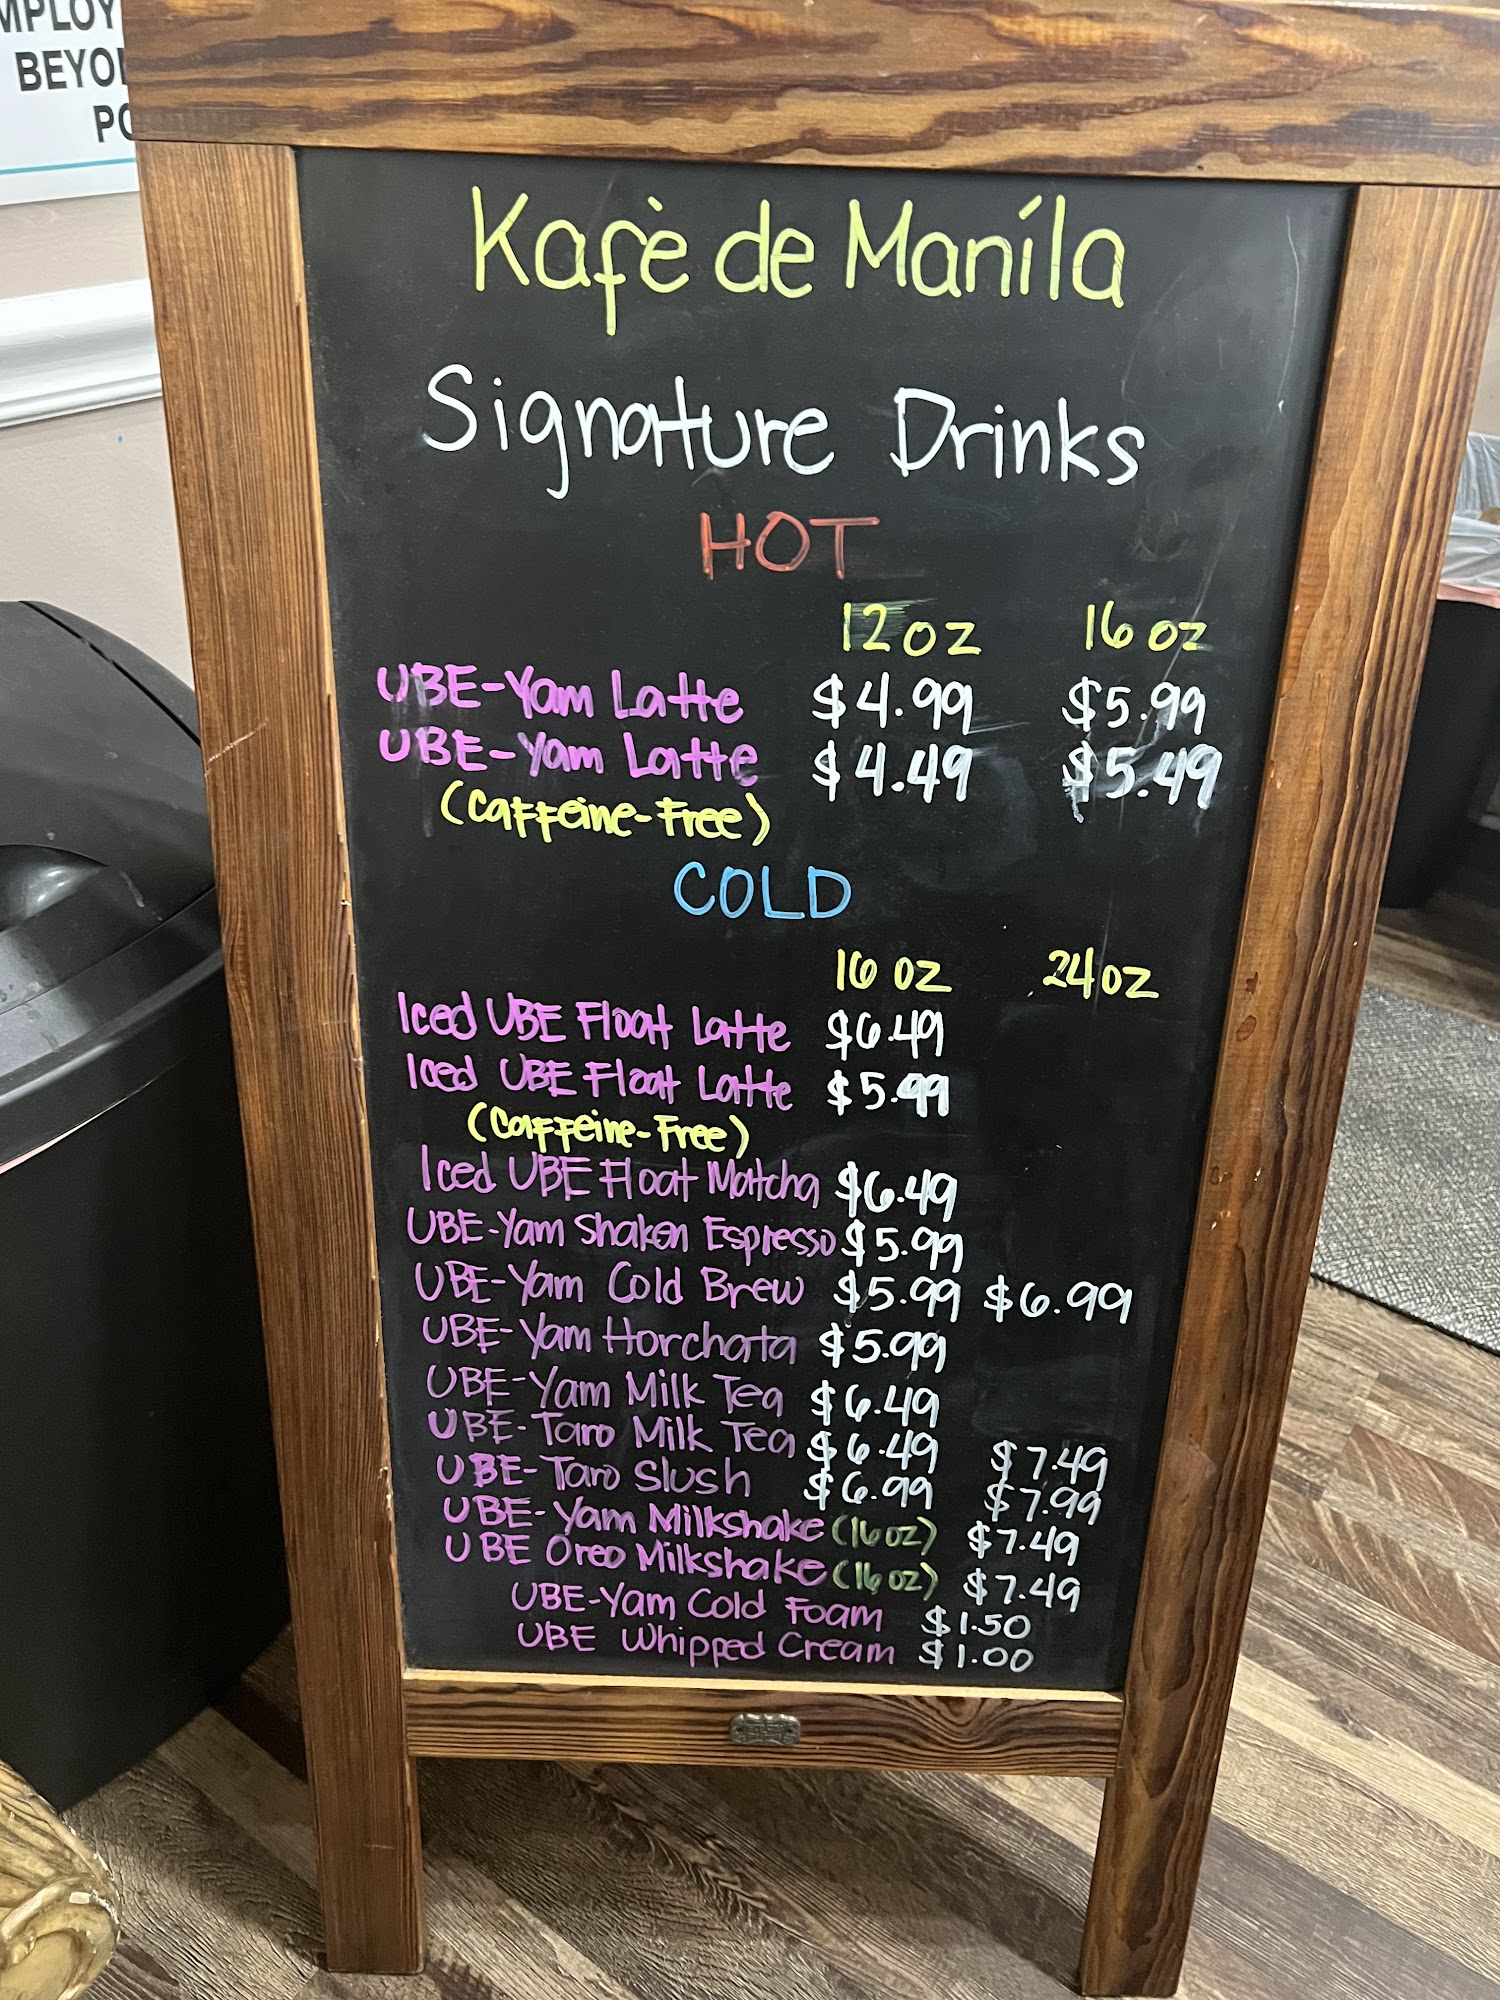 MPLOY
BEYO
PO
Kafè de Maníla
Signature Drinks
HOT
12 oz 16 oz
UBE-Yam Latte $4.99 $5.99
UBE-Yam Latte $4.49 $5.49
(Caffeine-Free)
COLD
16 oz 24 oz
Iced UBE Float Latte $6.49
Iced UBE Float Latte $5.99
(Caffeine-Free)
Iced UBE Float Matcha $6.49
UBE-Yam Shaken Espresso $5.99
UBE-Yam Cold Brew $5.99 $6.99
UBE-Yam Horchata $5.99
UBE-Yam Milk Tea $6.49
UBE-Taro Milk Tea $6.49 $7.49
UBE-Taro Slush $6.99 $7.99
UBE-Yam Milkshake (16 oz) $7.49
UBE Oreo Milkshake (16 oz) $7.49
UBE-Yam Cold Foam $1.50
UBE Whipped Cream $1.00